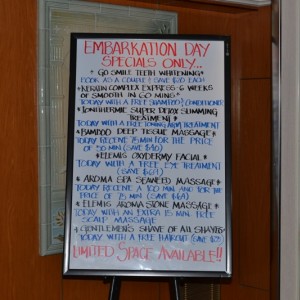 EMBARKATION DAY
SPECIALS ONLY...
* GO SMILE TEETH WHITENING*
BOOK AS A COUPLE & SAVE $20 EACH
*KERATIN COMPLEX EXPRESS-6 WEEKS
OF SMOOTH IN 60 MINS*
TODAY WITH A FREE SHAMPOO & CONDITIONER
*IONITHERMIE SUPER DETOX SLIMMING
TREATMENT*
TODAY WITH A FREE TONING ARM TREATMENT
*BAMBOO DEEP TISSUE MASSAGE*
TODAY RECEIVE 75MIN FOR THE PRICE
OF 50 MIN
*ELEMIS OXYDERMY FACIAL*
TODAY WITH A FREE EYE TREATMENT
*AROMA SEA SEAWEED MASSAGE*
TODAY RECEIVE A 100 MIN FOR THE
PRICE OF 75 MIN
*ELEMIS AROMA STONE MASSAGE*
TODAY WITH AN EXTRA 15 MIN. FREE
SCALP MASSAGE
*GENTLEMEN'S SHAVE OF ALL SHAVES*
TODAY WITH A FREE HAIRCUT
LIMITED SPACE AVAILABLE!!